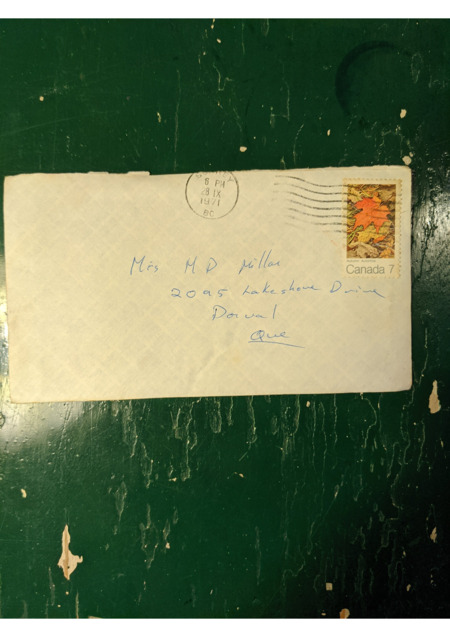 8 PM
28 IX
1971
BC
Canada 7
Mrs M D Millar
2095 Lakeshore Drive
Dorval
Que